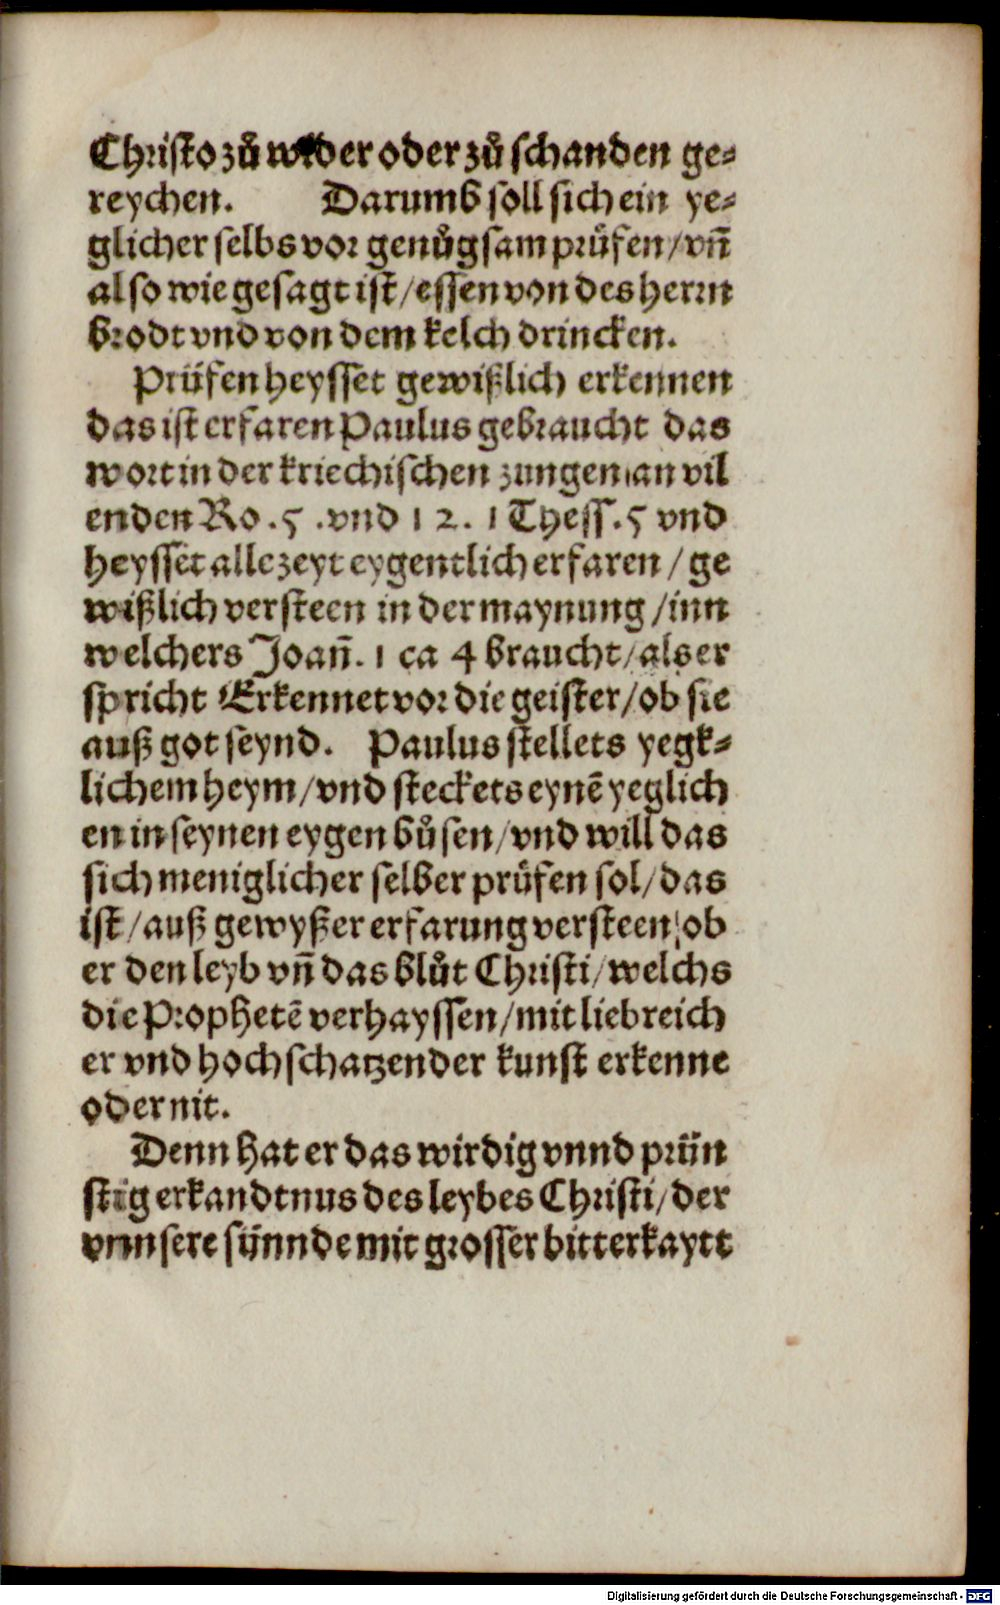 Christo zů wider oder zů schanden ge⸗
reychen. Darumb soll sich ein ye⸗
glicher selbs vor genůgsam prüfen/vñ
also wie gesagt ist/essen von des herrn
brodt vnd von dem kelch drincken.
Prüfen heysset gewißlich erkennen
das ist erfaren Paulus gebraucht das
wort in der kriechischen zungen an vil
enden Ro.5.vnd 12. 1 Thess.5 vnd
heysset allezeyt eygentlich erfaren/ge
wißlich versteen in der maynung/inn
welchers Joañ. 1 ca 4 braucht/als er
spricht Erkennet vor die geister/ob sie
auß got seynd. Paulus stellets yegk⸗
lichem heym/vnd steckets eynē yeglich
en in seynen eygen bůsen/vnd will das
sich meniglicher selber prüfen sol/das
ist/auß gewyßer erfarung versteen/ob
er den leyb vñ das blůt Christi/welchs
die Prophetē verhayssen/mit liebreich
er vnd hochschatzender kunst erkenne
oder nit.
Denn hat er das wirdig vnnd prün
stig erkandtnus des leybes Christi/der
vnnsere sünnde mit grosser bitterkaytt
Digitalisierung gefördert durch die Deutsche Forschungsgemeinschaft - DFG